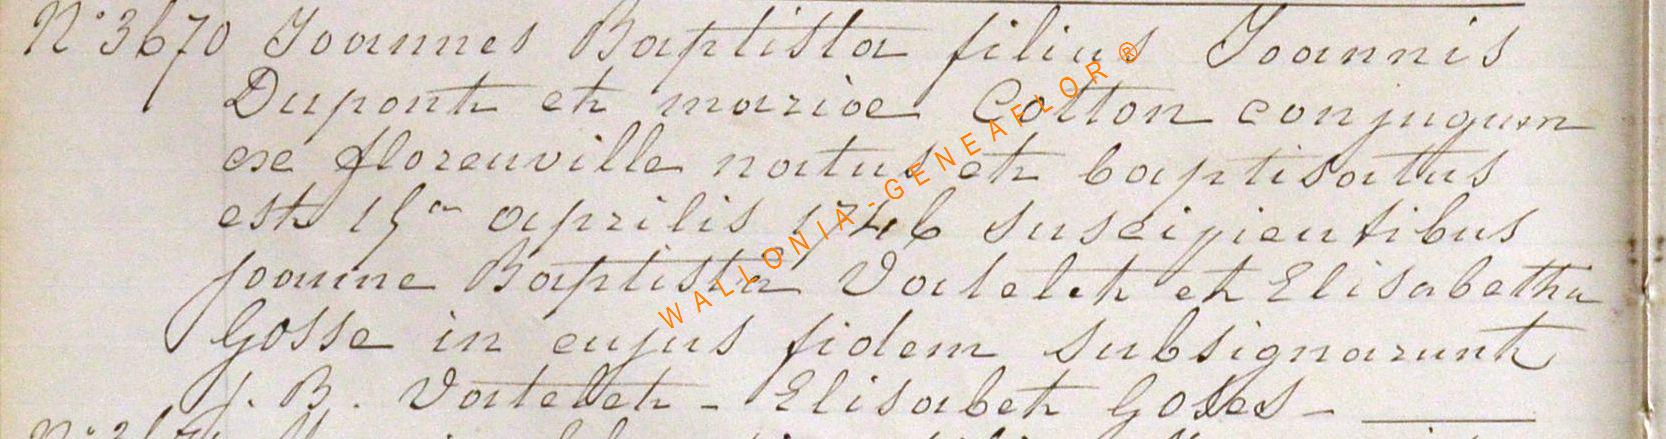 N° 3670 Joannes Baptista filius Joannis
Dupont et mariæ Cotton conjugum
ex florenville natus et baptisatus
est 15a aprilis 1746 suscipientibus
joanne Baptista Vatelet et Elisabetha
Gosse in cujus fidem subsignarunt
j. B. Vatelet - Elisabet Goses -
WALLONIA-GENEAFLOR ®